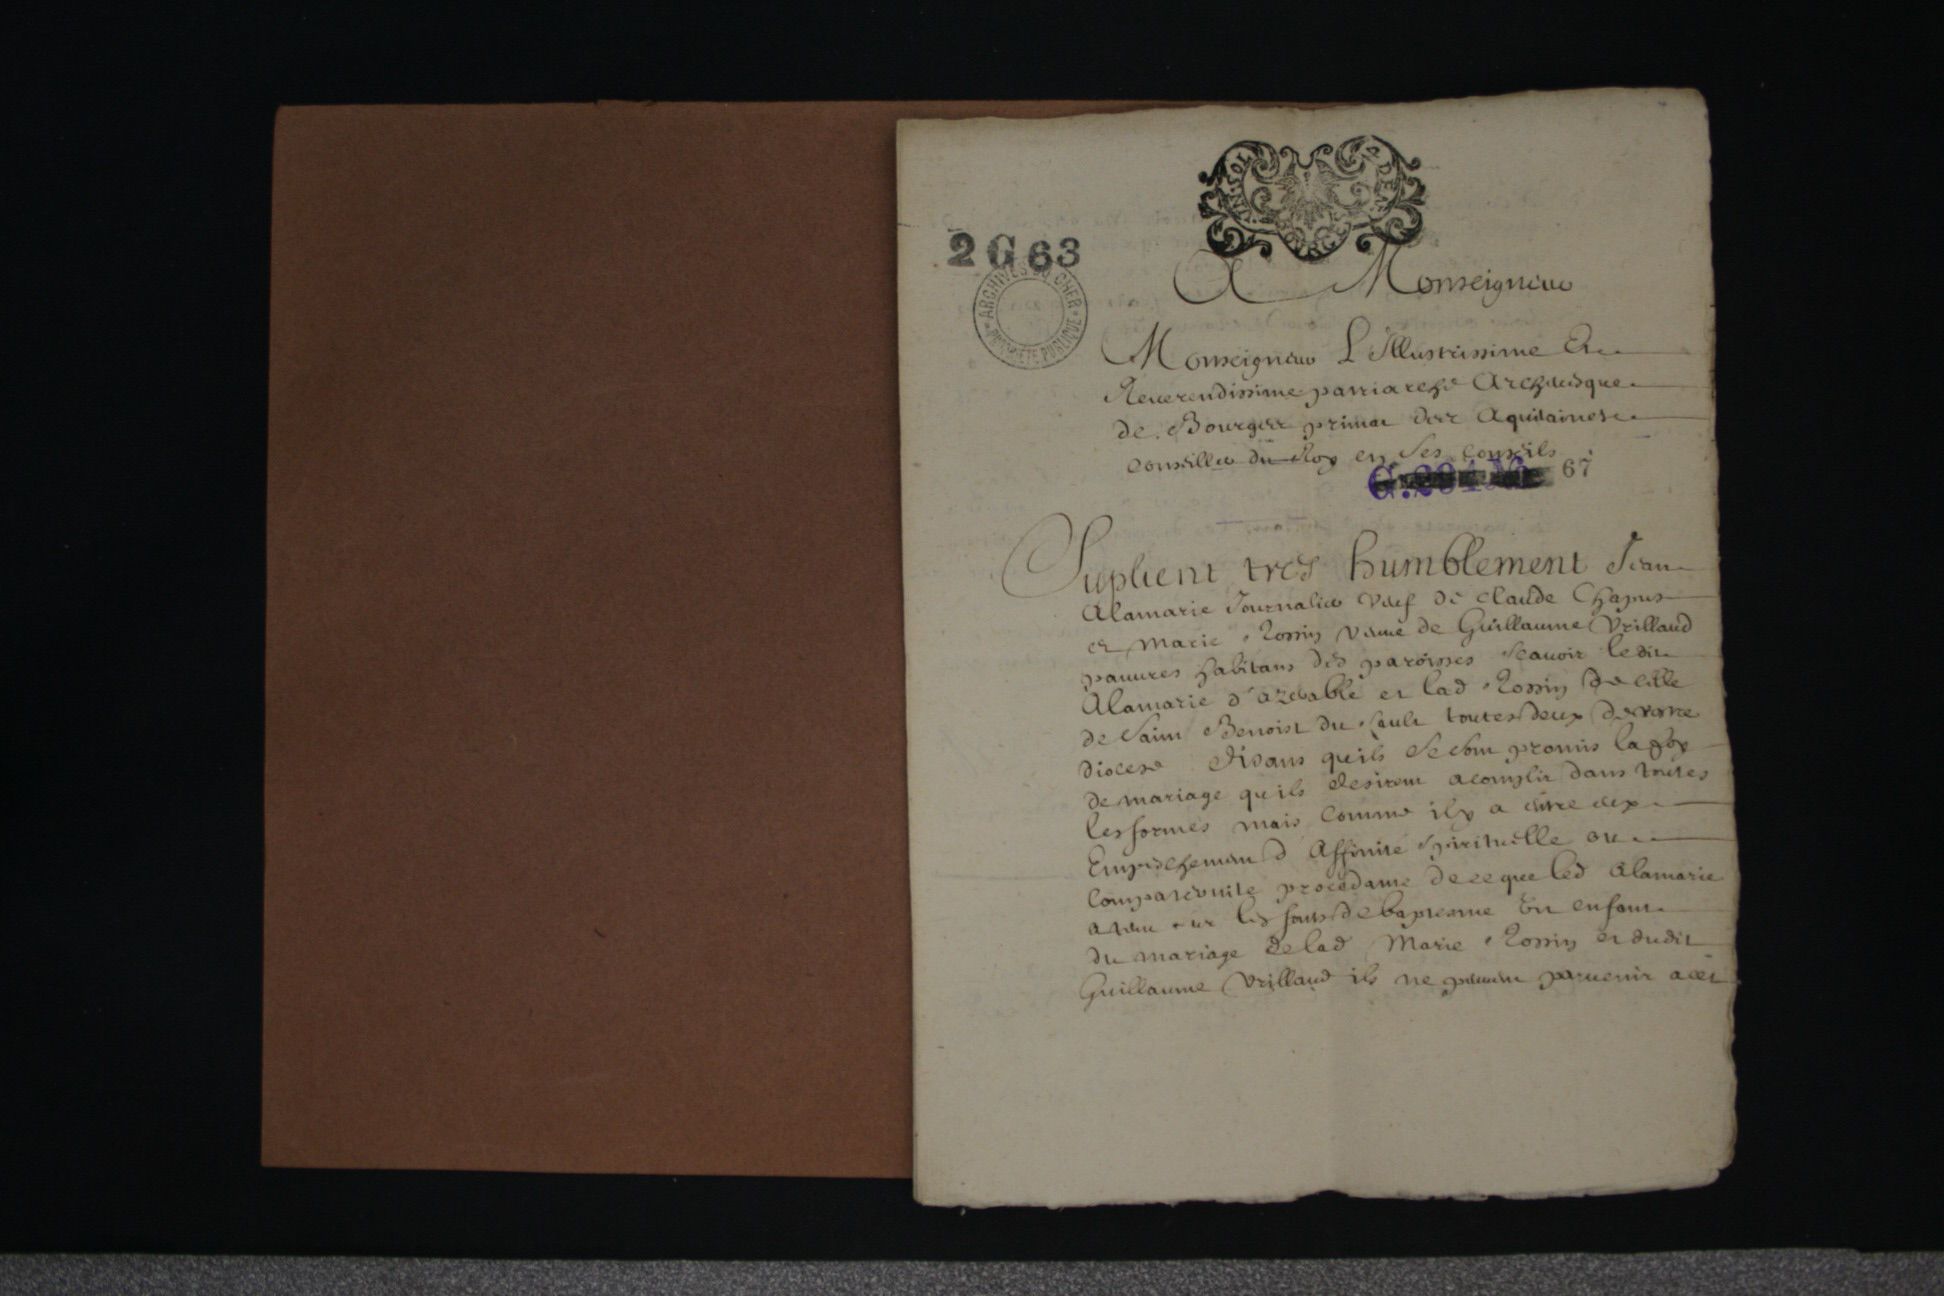 2 G 63
ARCHIVES DU CHER
PROPRIÉTÉ PUBLIQUE
A Monseigneur
Monseigneur L Illustrissime Et
Reuerendissime patriarche Archeuesque
de Bourges primat des Aquitaines
conseiller du Roy en Ses conseils
67
Suplient tres humblement Jean
Alamarie Journalier veuf de claude Chapus
et Marie Rossin veuue de Guillaume Vrillaud
pauures habitans des paroisses scauoir ledit
Alamarie d'azerable et lad Rossin de celle
de Saint Benoist du Sault toutes deux de votre
diocese Disans quils se sont promis la foy
de mariage quils desirent acomplir dans toutes
les formes mais comme il y a entre eux
Empeschement d Affinité spirituelle ou
Compaternité procedante de ce que led Alamarie
a tenu sur les fonts de baptesme Un enfant
du mariage de lad Marie Rossin et dudit
Guillaume Vrillaud ils ne peuuent paruenir a cet